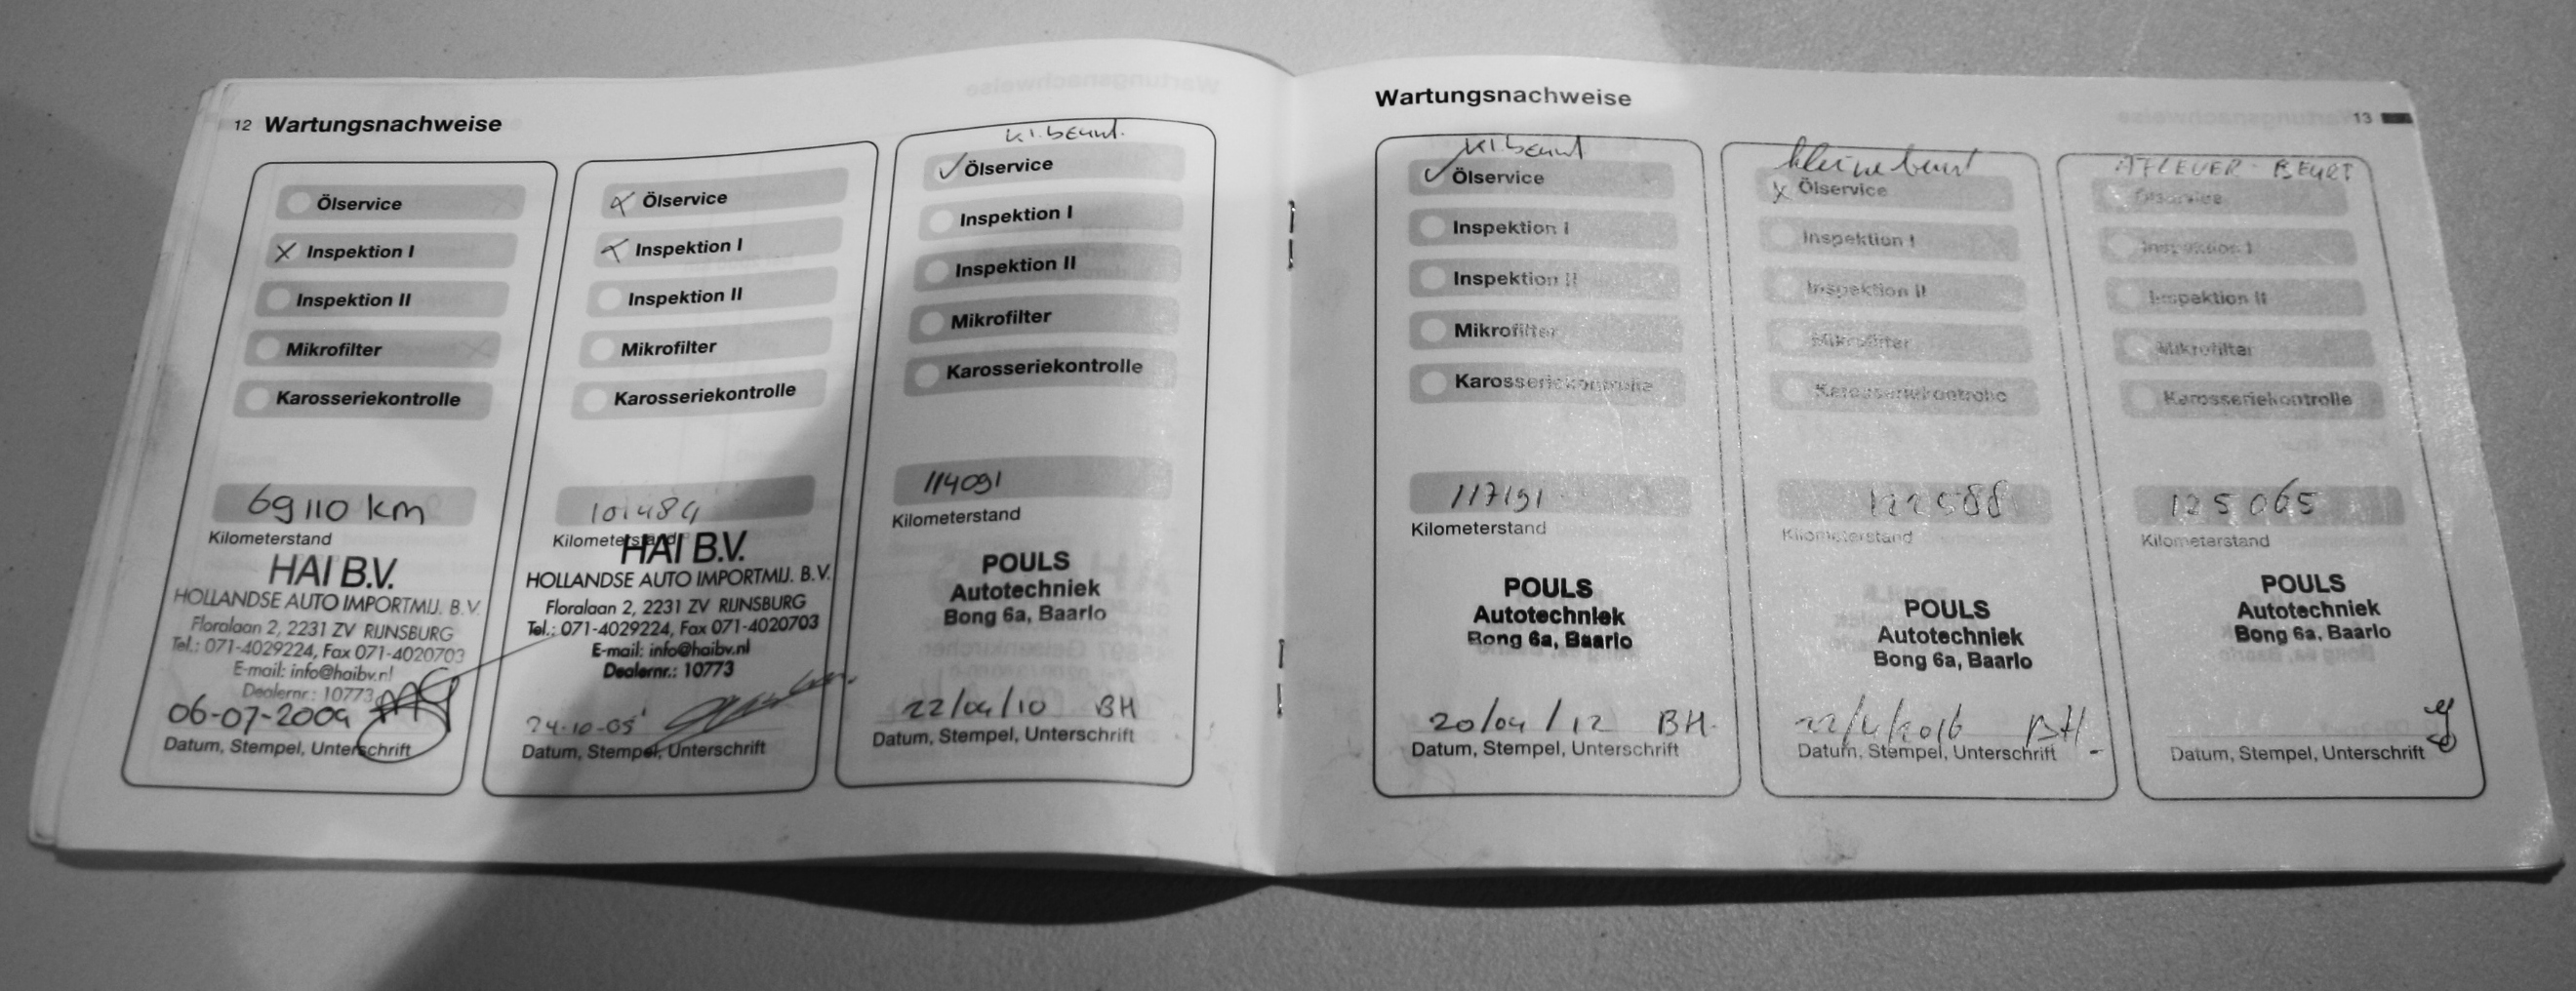 12 Wartungsnachweise
Ölservice
Inspektion I
Inspektion II
Mikrofilter
Karosseriekontrolle
69110 km
Kilometerstand
HAI B.V.
HOLLANDSE AUTO IMPORTMIJ. B.V.
Floralaan 2, 2231 ZV RIJNSBURG
Tel.: 071-4029224, Fax 071-4020703
E-mail: info@haibv.nl
Dealernr.: 10773
06-07-2004
Datum, Stempel, Unterschrift
Ölservice
Inspektion I
Inspektion II
Mikrofilter
Karosseriekontrolle
101484
Kilometerstand
HAI B.V.
HOLLANDSE AUTO IMPORTMIJ. B.V.
Floralaan 2, 2231 ZV RIJNSBURG
Tel.: 071-4029224, Fax 071-4020703
E-mail: info@haibv.nl
Dealernr.: 10773
24-10-05
Datum, Stempel, Unterschrift
kl. beurt.
Ölservice
Inspektion I
Inspektion II
Mikrofilter
Karosseriekontrolle
114091
Kilometerstand
POULS
Autotechniek
Bong 6a, Baarlo
22/04/10 BH
Datum, Stempel, Unterschrift
Wartungsnachweise 13
kl. beurt
Ölservice
Inspektion I
Inspektion II
Mikrofilter
Karosseriekontrolle
117191
Kilometerstand
POULS
Autotechniek
Bong 6a, Baarlo
20/04/12 BH.
Datum, Stempel, Unterschrift
kleine beurt
Ölservice
Inspektion I
Inspektion II
Mikrofilter
Karosseriekontrolle
122588
Kilometerstand
POULS
Autotechniek
Bong 6a, Baarlo
22/4/2016 BH.
Datum, Stempel, Unterschrift
AFLEVER - BEURT
Ölservice
Inspektion I
Inspektion II
Mikrofilter
Karosseriekontrolle
125065
Kilometerstand
POULS
Autotechniek
Bong 6a, Baarlo
Datum, Stempel, Unterschrift